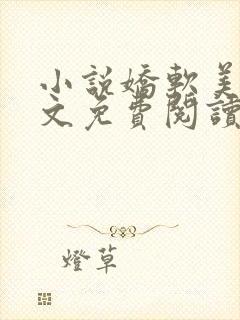 小說嬌軟美
文免費閱讀
燈草